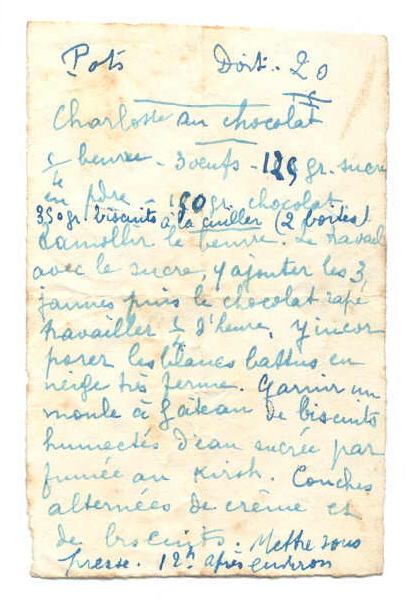 Pots Doit. 20
Charlotte au chocolat
beurre - 3 oeufs - 125 gr. sucre
en pdre - 150 gr. chocolat
350gr. biscuits à la cuiller (2 boîtes)
Ramollir le beurre. Le travail
avec le sucre, y ajouter les 3
jaunes puis le chocolat rapé
travailler 1/4 d'heure, y incor
porer les blancs battus en
neige très ferme. Garnir un
moule à gâteau de biscuits
humectés d'eau sucrée par
fumée au Kirsh. Couches
alternées de crème et
de biscuits. Mettre sous
presse. 12h après environ